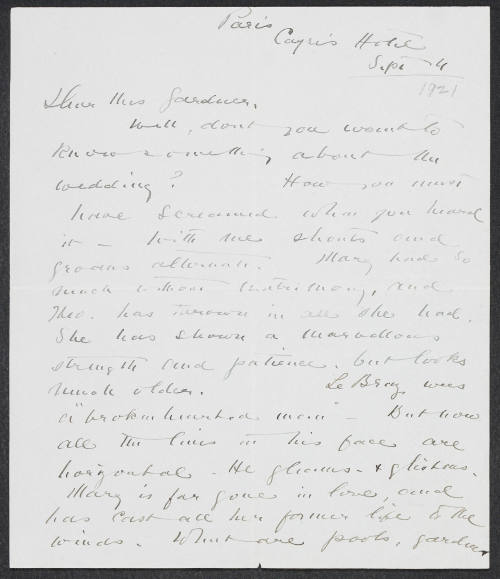 Paris
Cayris Hotel
Sept 4
1921
Dear Mrs Gardner,
Well, dont you want to
know something about the
wedding? How you must
have screamed when you heard
it – With me shouts and
groans alternate. Mary had so
much without matrimony, and
Theo. has thrown in all she had.
She has shown a marvellous
strength and patience, but looks
much older. Le Bray was
a "broken hearted man" – But now
all the lines in his face are
horizontal – He gleams – & glistens.
Mary is far gone in love, and
has cast all her former life to the
winds. What are pools, gardens